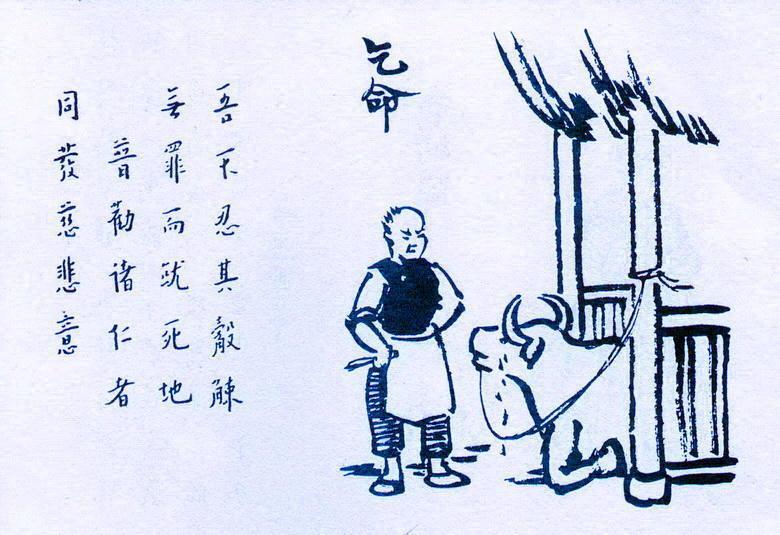 乞命
吾不忍其觳觫
無罪而就死地
普勸諸仁者
同發慈悲意